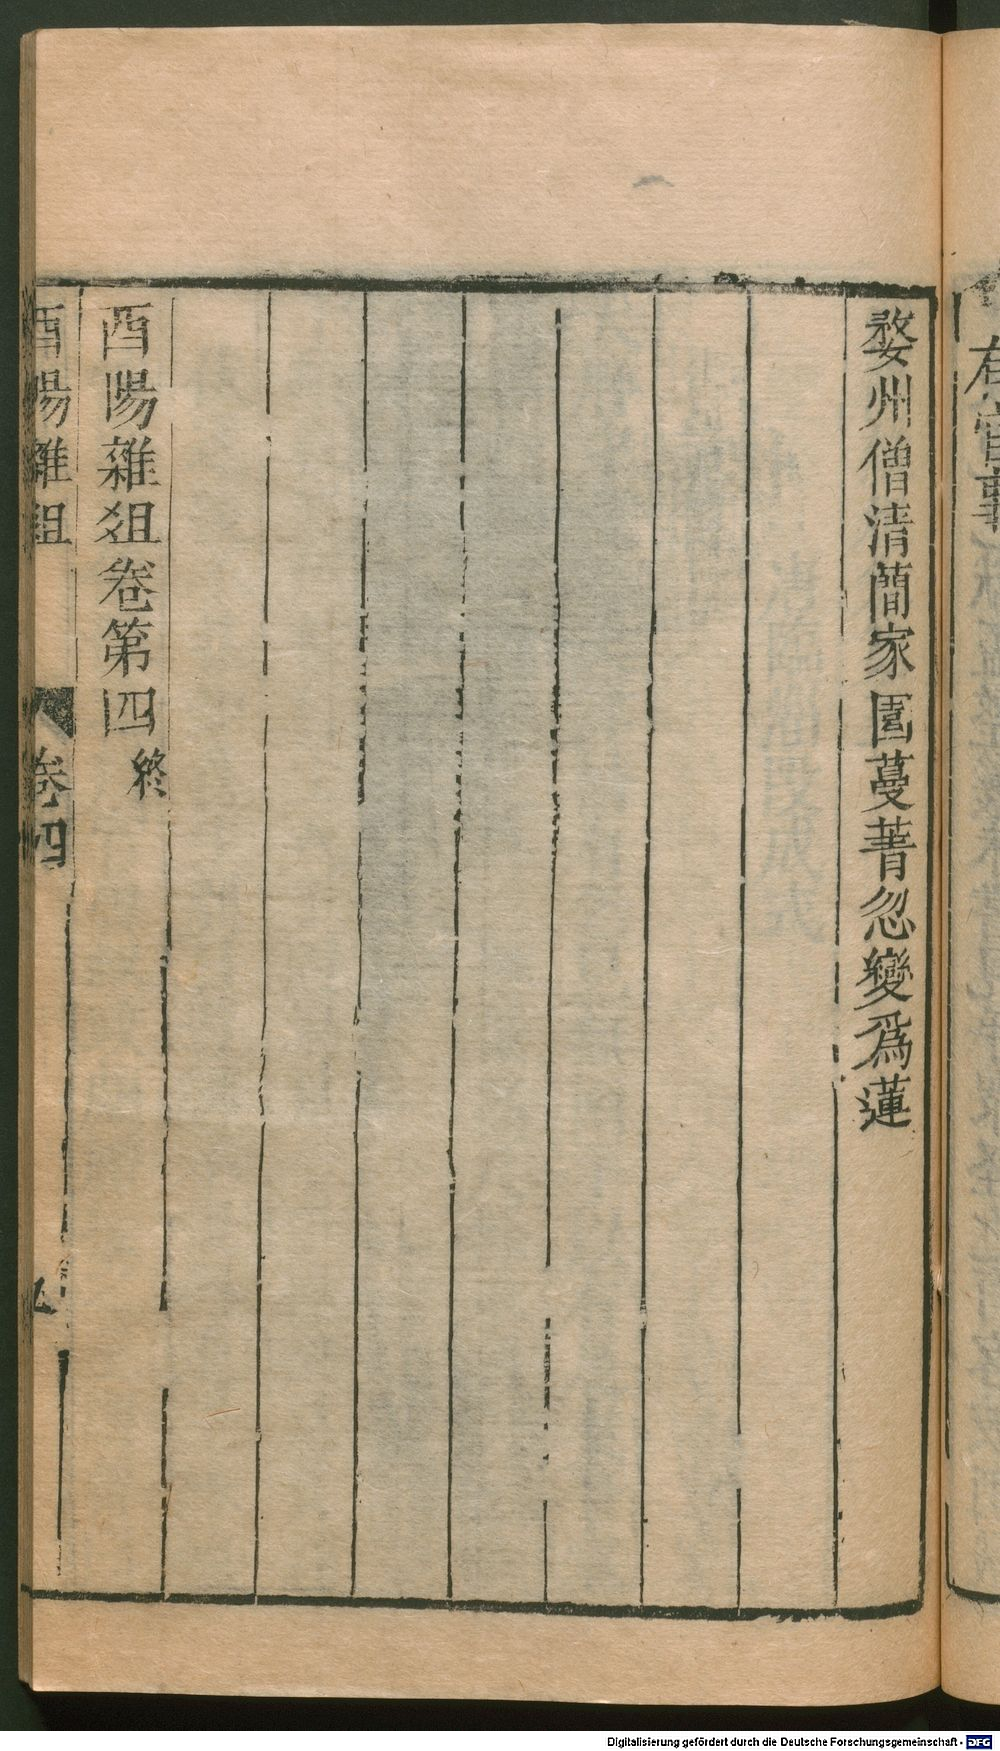 婺州僧清蕳家園蔓菁忽變爲蓮
酉陽雜俎卷第四 終
酉陽雜俎 卷四
Digitalisierung gefördert durch die Deutsche Forschungsgemeinschaft - DFG